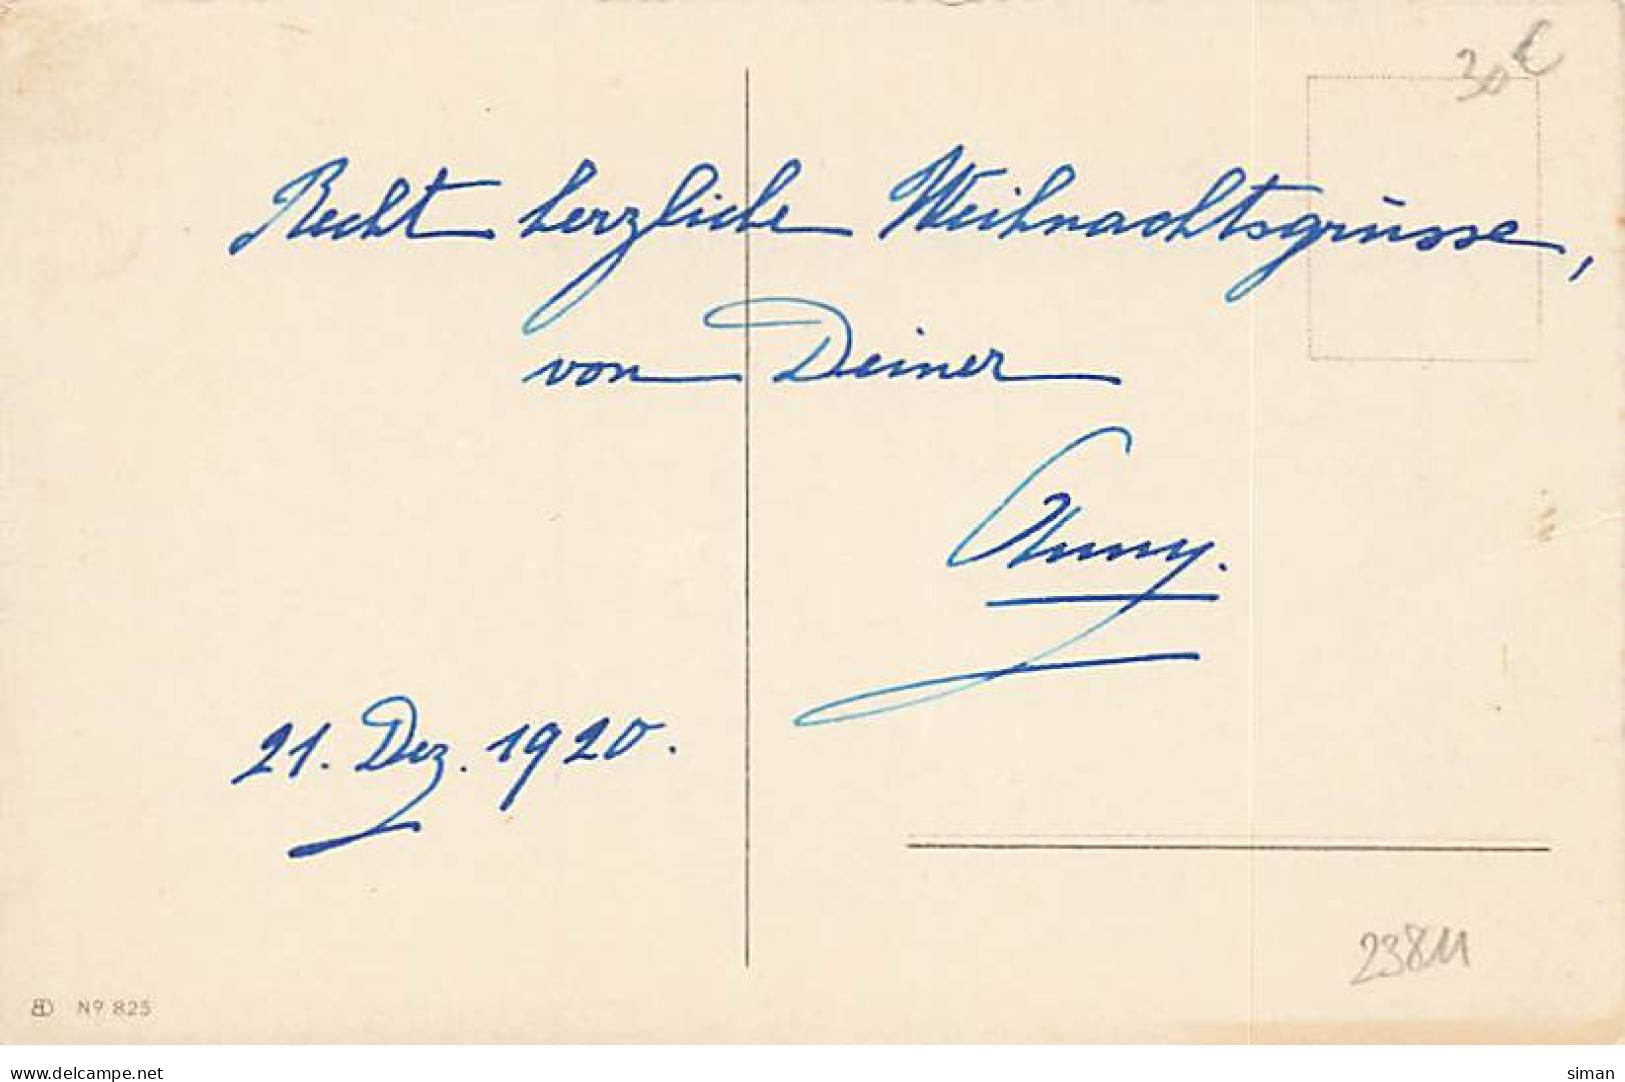 30 €
Recht herzliche Weihnachtsgrüsse,
von Deiner
Anny.
21. Dez. 1920.
23811
BD Nº 825
www.delcampe.net
siman